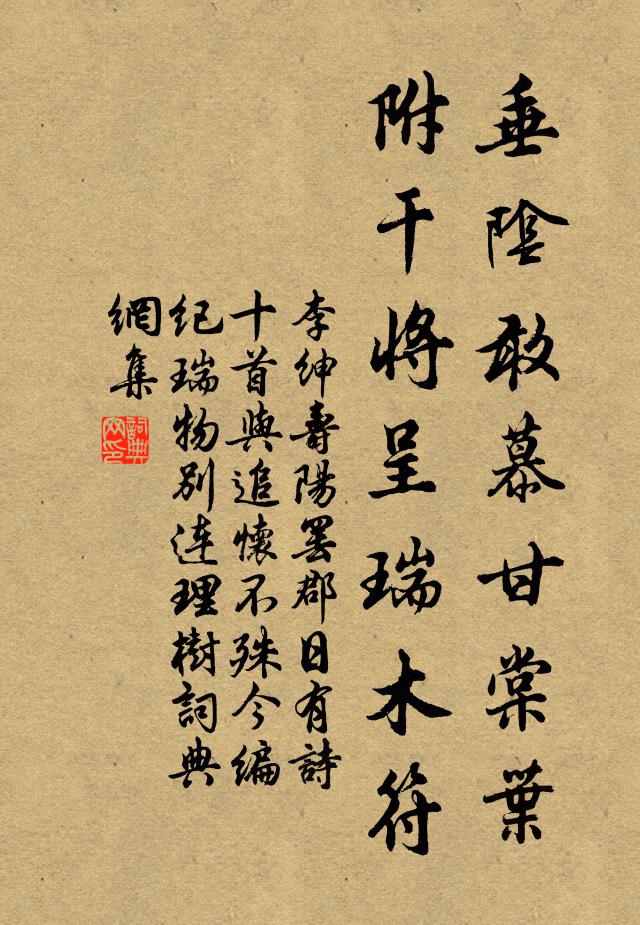 垂陰敢慕甘棠葉
附干將呈瑞木符
李紳壽陽罷郡日有詩
十首與追懷不殊今編
紀瑞物別連理樹詞典
網集
詞典網印